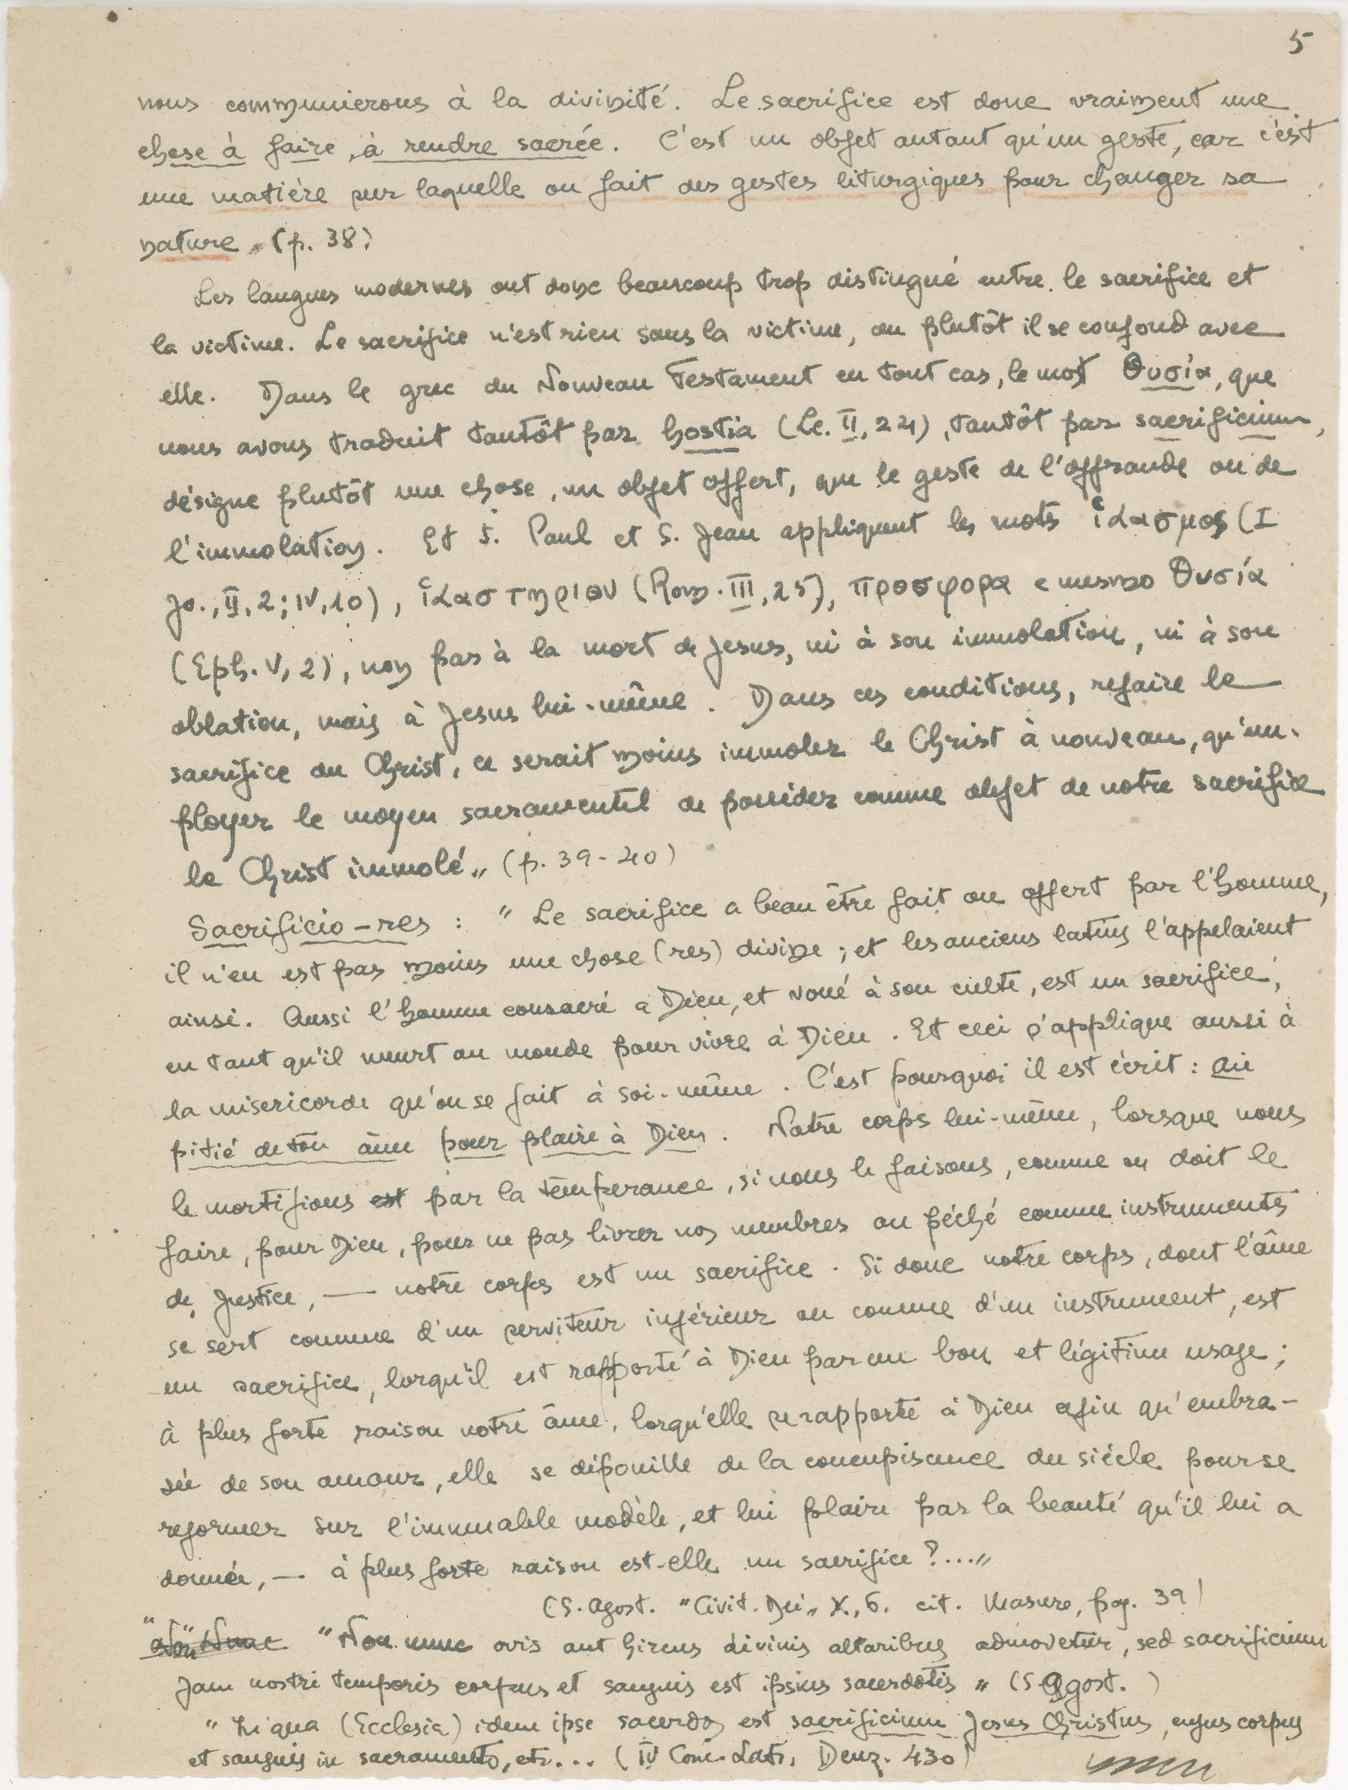 5
nous communierons à la divinité. Le sacrifice est donc vraiment une
chose à faire, à rendre sacrée. C'est un objet autant qu'un geste, car c'est
une matière sur laquelle on fait des gestes liturgiques pour changer sa
nature „ (p. 38)
Les langues modernes ont donc beaucoup trop distingué entre le sacrifice et
la victime. Le sacrifice n'est rien sans la victime, ou plutôt il se confond avec
elle. Dans le grec du Nouveau Testament en tout cas, le mot Θυσία, que
nous avons traduit tantôt par hostia (Lc. II, 24), tantôt par sacrificium,
désigne plutôt une chose, un objet offert, que le geste de l'offrande ou de
l'immolation. Et S. Paul et S. Jean appliquent les mots ἱλασμος (I
Jo., II, 2; IV, 10), ἱλαστηριον (Rom. III, 25), προσφορα e mesmo Θυσία
(Eph. V, 2), non pas à la mort de Jesus, ni à son immolation, ni à son
oblation, mais à Jesus lui-même. Dans ces conditions, refaire le
sacrifice du Christ, ce serait moins immoler le Christ à nouveau, qu'em-
ployer le moyen sacramentel de posséder comme objet de notre sacrifice
le Christ immolé „ (p. 39-40)
Sacrificio-res : " Le sacrifice a beau être fait ou offert par l'homme,
il n'en est pas moins une chose (res) divine; et les anciens latins l'appelaient
ainsi. Aussi l'homme consacré a Dieu, et voué à son culte, est un sacrifice,
en tant qu'il meurt au monde pour vivre à Dieu. Et ceci s'applique aussi à
la misericorde qu'on se fait à soi-même. C'est pourquoi il est écrit: Aie
pitié de ton âme pour plaire à Dieu. Notre corps lui-même, lorsque nous
le mortifions est par la tempérance, si nous le faisons, comme on doit le
faire, pour Dieu, pour ne pas livrer nos membres au péché comme instruments
de justice, — notre corps est un sacrifice. Si donc notre corps, dont l'âme
se sert comme d'un serviteur inférieur ou comme d'un instrument, est
un sacrifice, lorqu'il est rapporté à Dieu par un bon et légitime usage;
à plus forte raison notre âme, lorqu'elle se rapporte à Dieu afin qu'embra-
sée de son amour, elle se dépouille de la concupiscence du siècle pour se
reformer sur l'immuable modèle, et lui plaire par la beauté qu'il lui a
donnée, — à plus forte raison est-elle un sacrifice ?... „
(S. Agost. "Civit. Dei„ X, 6. cit. Masure, pag. 39)
"Non nunc ovis aut hircus divinis altaribus admovetur, sed sacrificium
jam nostri temporis corpus et sanguis est ipsius sacerdotis „ (S. Agost. )
" In qua (Ecclesia) idem ipse sacerdos est sacrificium Jesus Christus, cujus corpus
et sanguis in sacramento, etc... (IV Conc. Lat., Denz. 430)